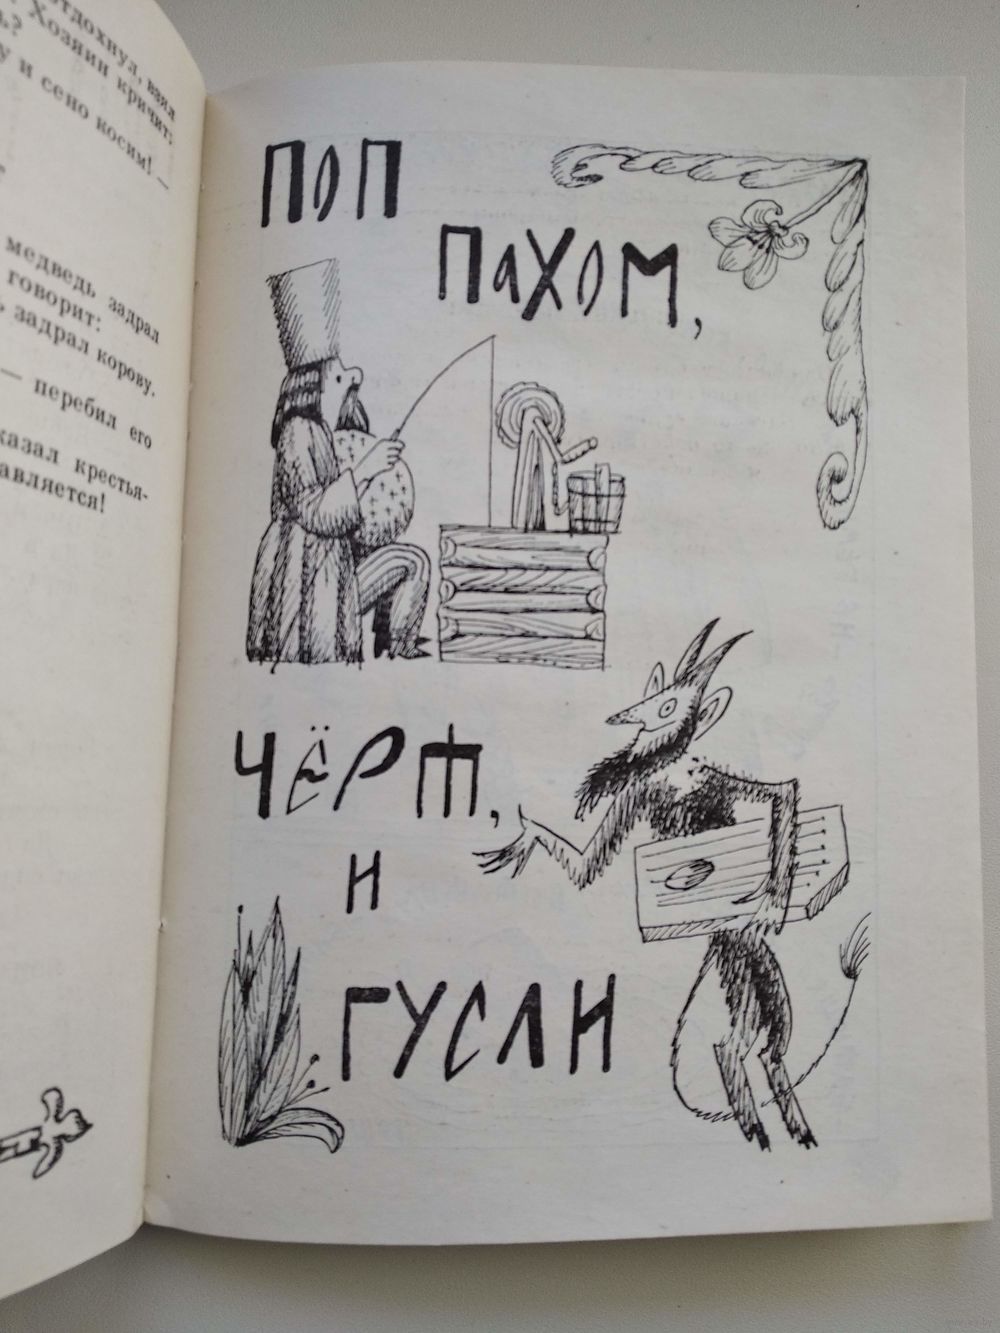 отдохнул, взял
Хозяин кричит:
у и сено косим! —
медведь задрал
говорит:
задрал корову.
— перебил его
казал крестья-
авляется!
ПОП
ПАХОМ,
ЧЁРТ,
И
ГУСЛИ